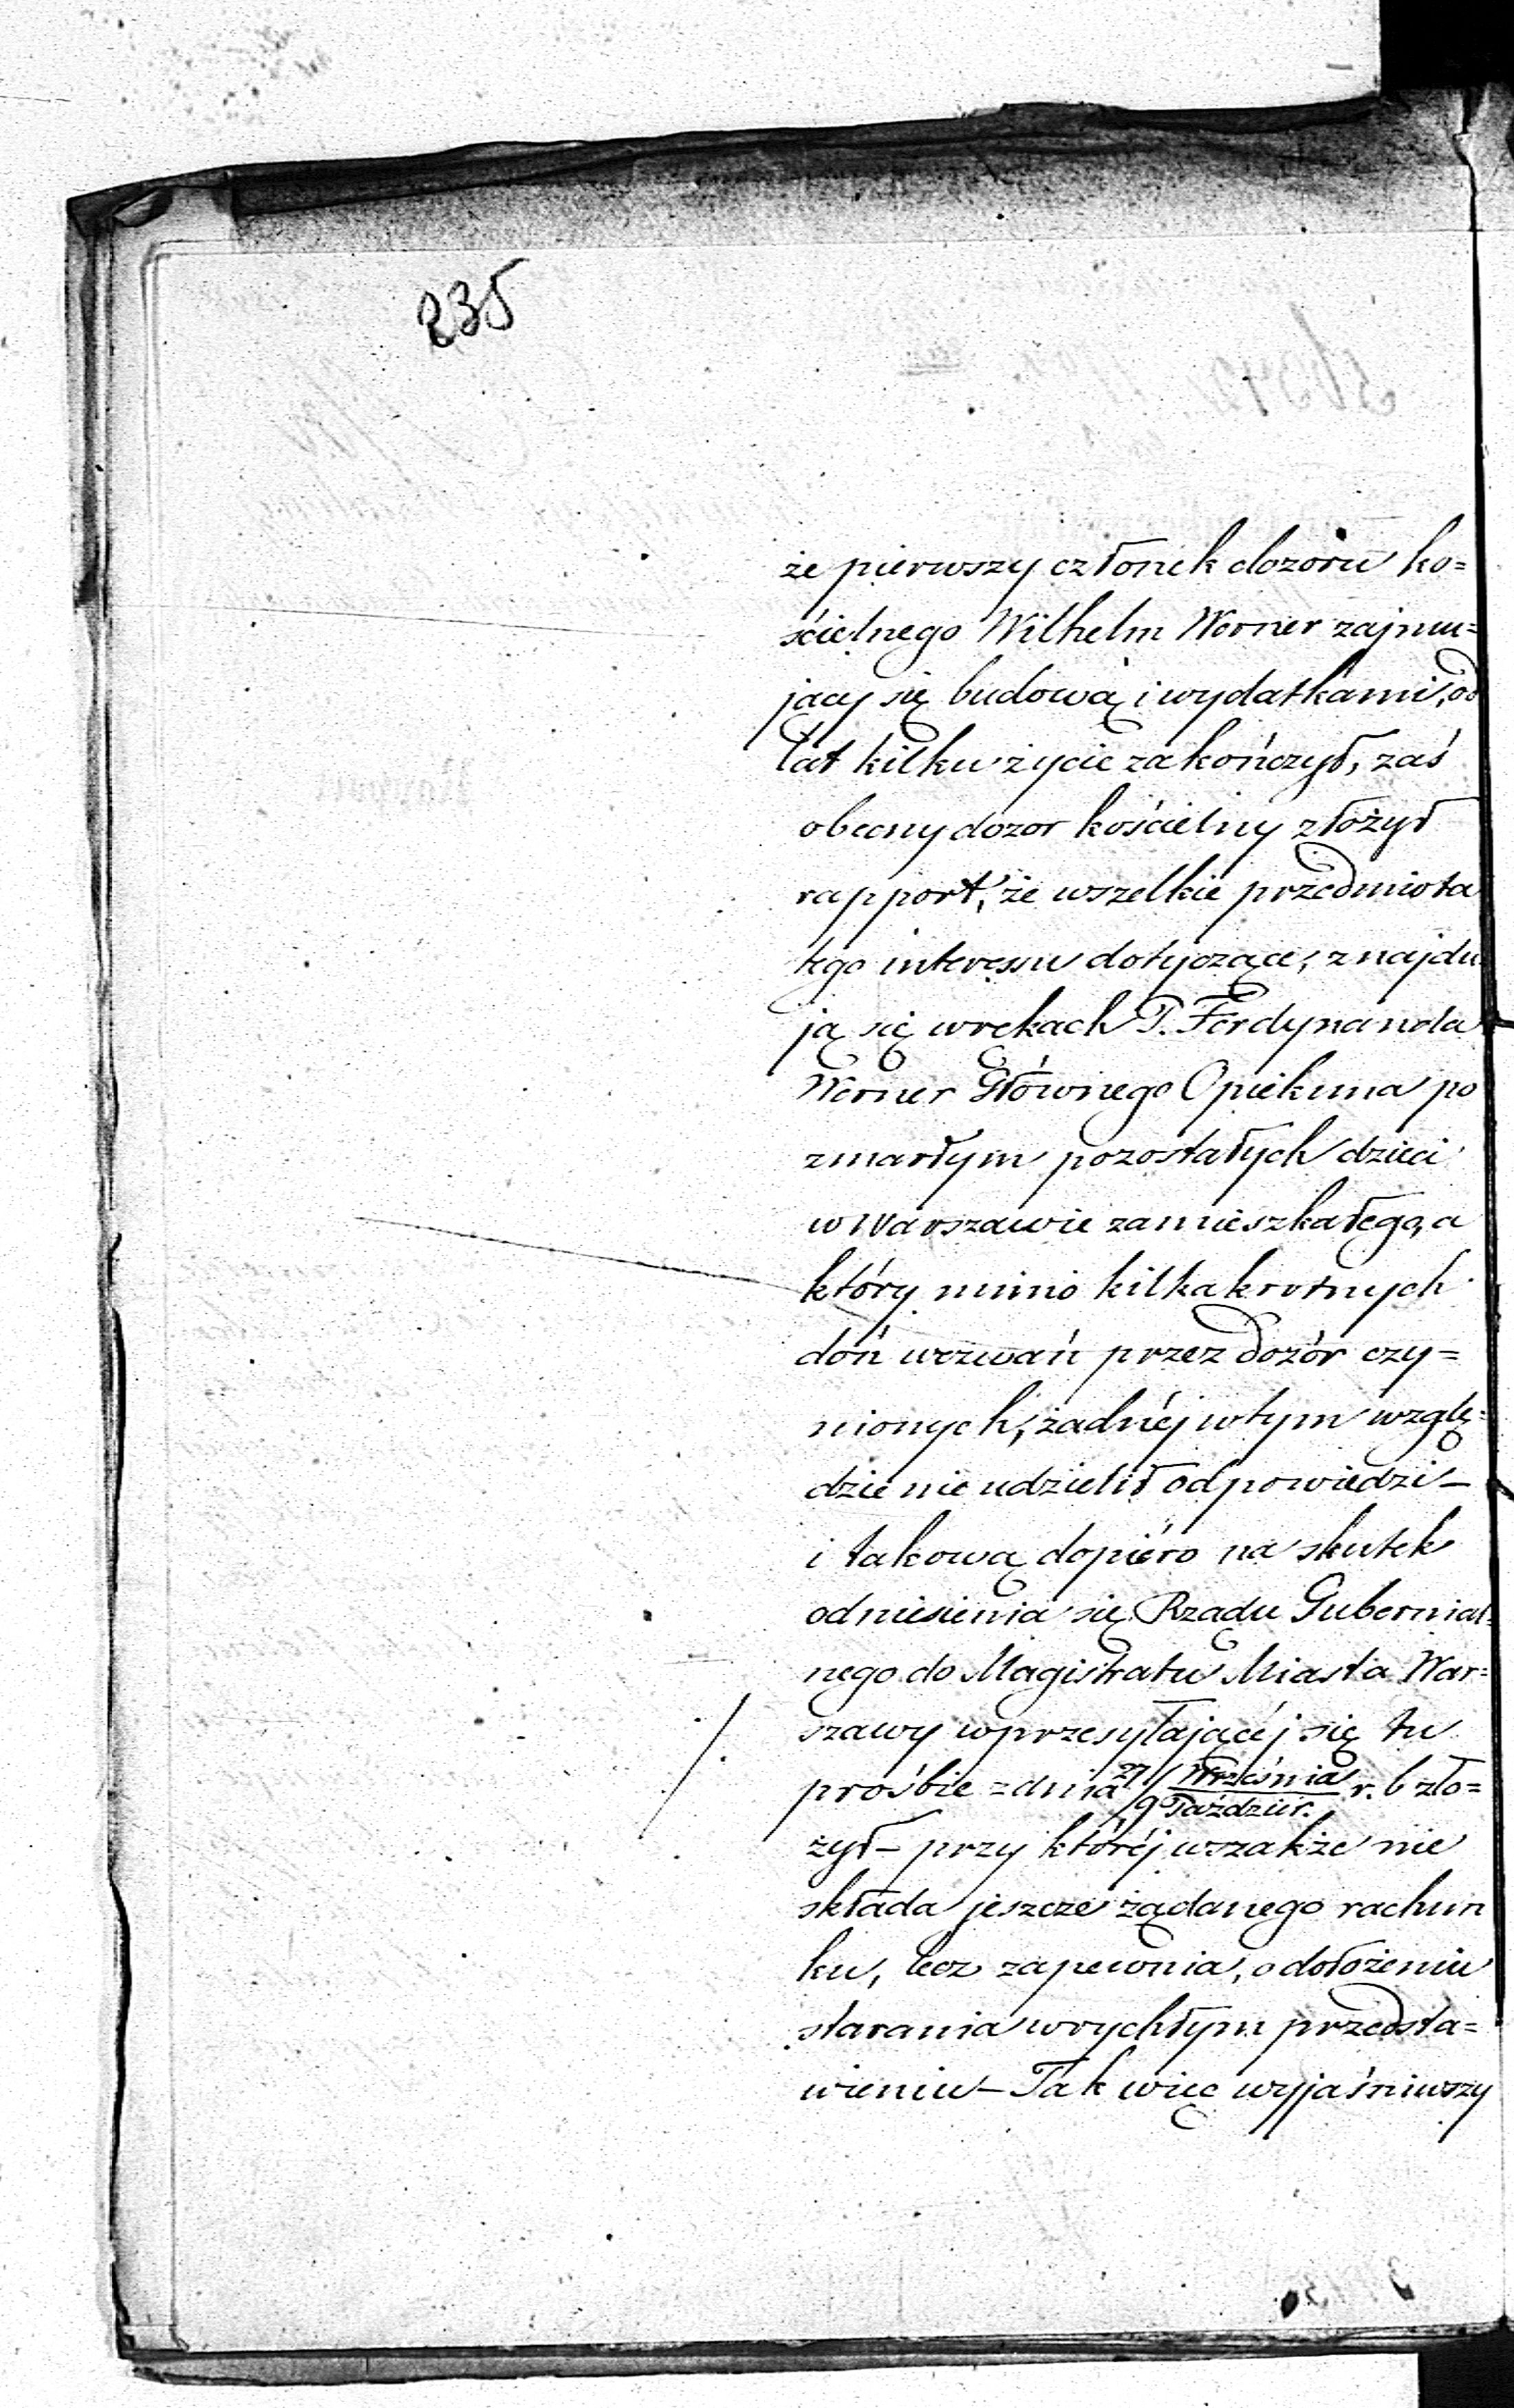 235
że pierwszy członek dozoru ko=
ścielnego Wilhelm Werner zajmu=
jący się budową i wydatkami, od
lat kilku życie zakończył, zaś
obecny dozor kościelny złożył
rapport, że wszelkie przedmiota
tego interessu dotyczące, znajdu
ją się w rękach P. Ferdynanda
Werner Głównego Opiekuna po
zmarłym pozostałych dzieci
w Warszawie zamieszkałego, a
który mimo kilkakrotnych
doń wezwań przez dozór czy=
nionych, żadnéj w tym wzglę=
dzie nie udzielił odpowiedzi –
i takową dopiéro na skutek
odniesienia się Rządu Gubernial=
nego do Magistratu Miasta War=
szawy w przesyłającéj się tu
prośbie z dnia 27/9 Września/Paździer. r. b zło=
żył – przy któréj wszakże nie
składa jeszcze żądanego rachun
ku, lecz zapewnia, o dołożeniu
starania w rychłym przedsta=
wieniu – Tak więc wyjaśniwszy